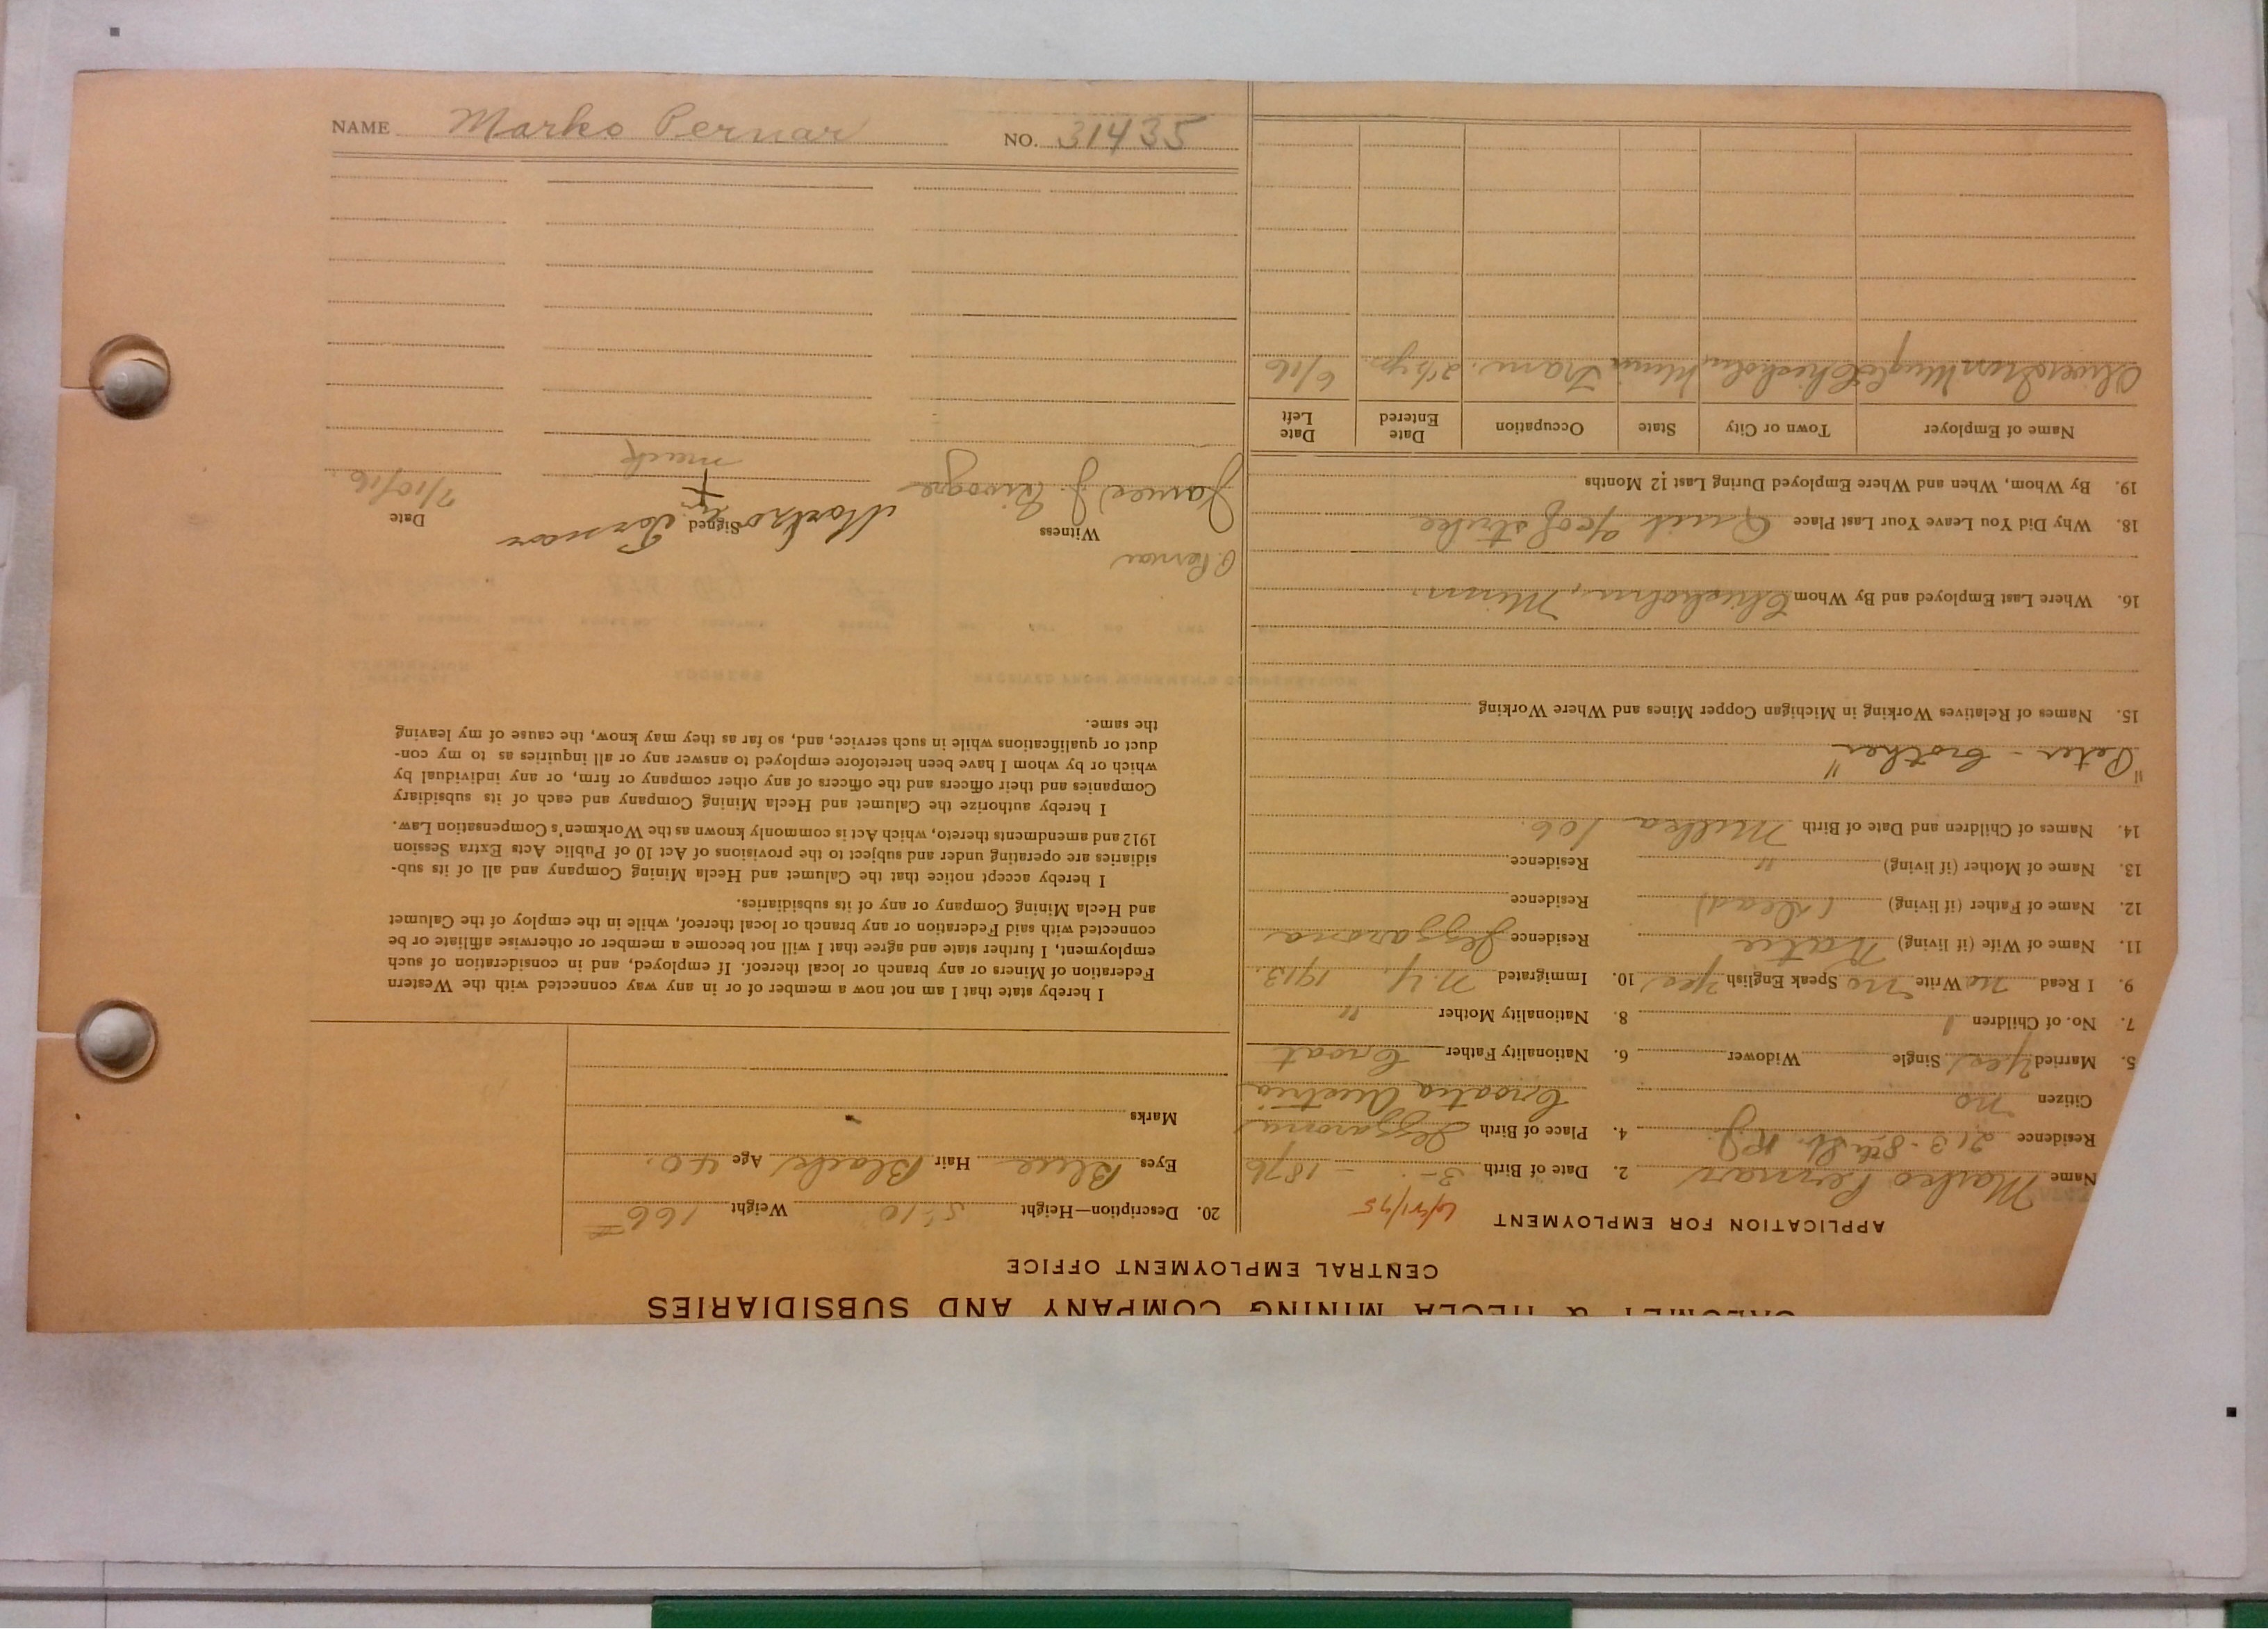 NAME Marko Pernar NO. 31435
CALUMET & HECLA MINING COMPANY AND SUBSIDIARIES
CENTRAL EMPLOYMENT OFFICE
APPLICATION FOR EMPLOYMENT
Name Marko Pernar 2. Date of Birth 3 - - 1876
Residence 213-8th St. R.J. 4. Place of Birth
Citizen no Croatia Austria
5. Married Yes Single Widower 6. Nationality Father Croat
7. No. of Children 1 8. Nationality Mother "
9. I Read no Write no Speak English Yes 10. Immigrated N.Y. 1913.
11. Name of Wife (if living) Katie Residence
12. Name of Father (if living) (dead) Residence
13. Name of Mother (if living) " Residence
14. Names of Children and Date of Birth Milka 106.
"Peter - brother"
15. Names of Relatives Working in Michigan Copper Mines and Where Working
16. Where Last Employed and By Whom Chisholm, Minn.
18. Why Did You Leave Your Last Place Quit strike
19. By Whom, When and Where Employed During Last 12 Months
Name of Employer Town or City State Occupation Date Entered Date Left
Oliver Iron Mng Co Chisholm Minn Tram. 2½ yrs. 6/16
20. Description—Height 5'-10 Weight 166
Eyes Blue Hair Black Age 40.
Marks -
I hereby state that I am not now a member of or in any way connected with the Western
Federation of Miners or any branch or local thereof. If employed, and in consideration of such
employment, I further state and agree that I will not become a member or otherwise affiliate or be
connected with said Federation or any branch or local thereof, while in the employ of the Calumet
and Hecla Mining Company or any of its subsidiaries.
I hereby accept notice that the Calumet and Hecla Mining Company and all of its sub-
sidiaries are operating under and subject to the provisions of Act 10 of Public Acts Extra Session
1912 and amendments thereto, which Act is commonly known as the Workmen's Compensation Law.
I hereby authorize the Calumet and Hecla Mining Company and each of its subsidiary
Companies and their officers and the officers of any other company or firm, or any individual by
which or by whom I have been heretofore employed to answer any or all inquiries as to my con-
duct or qualifications while in such service, and, so far as they may know, the cause of my leaving
the same.
P. Pernar
Witness Signed Date
James J. Marko x Pernar 7/10/16.
mark